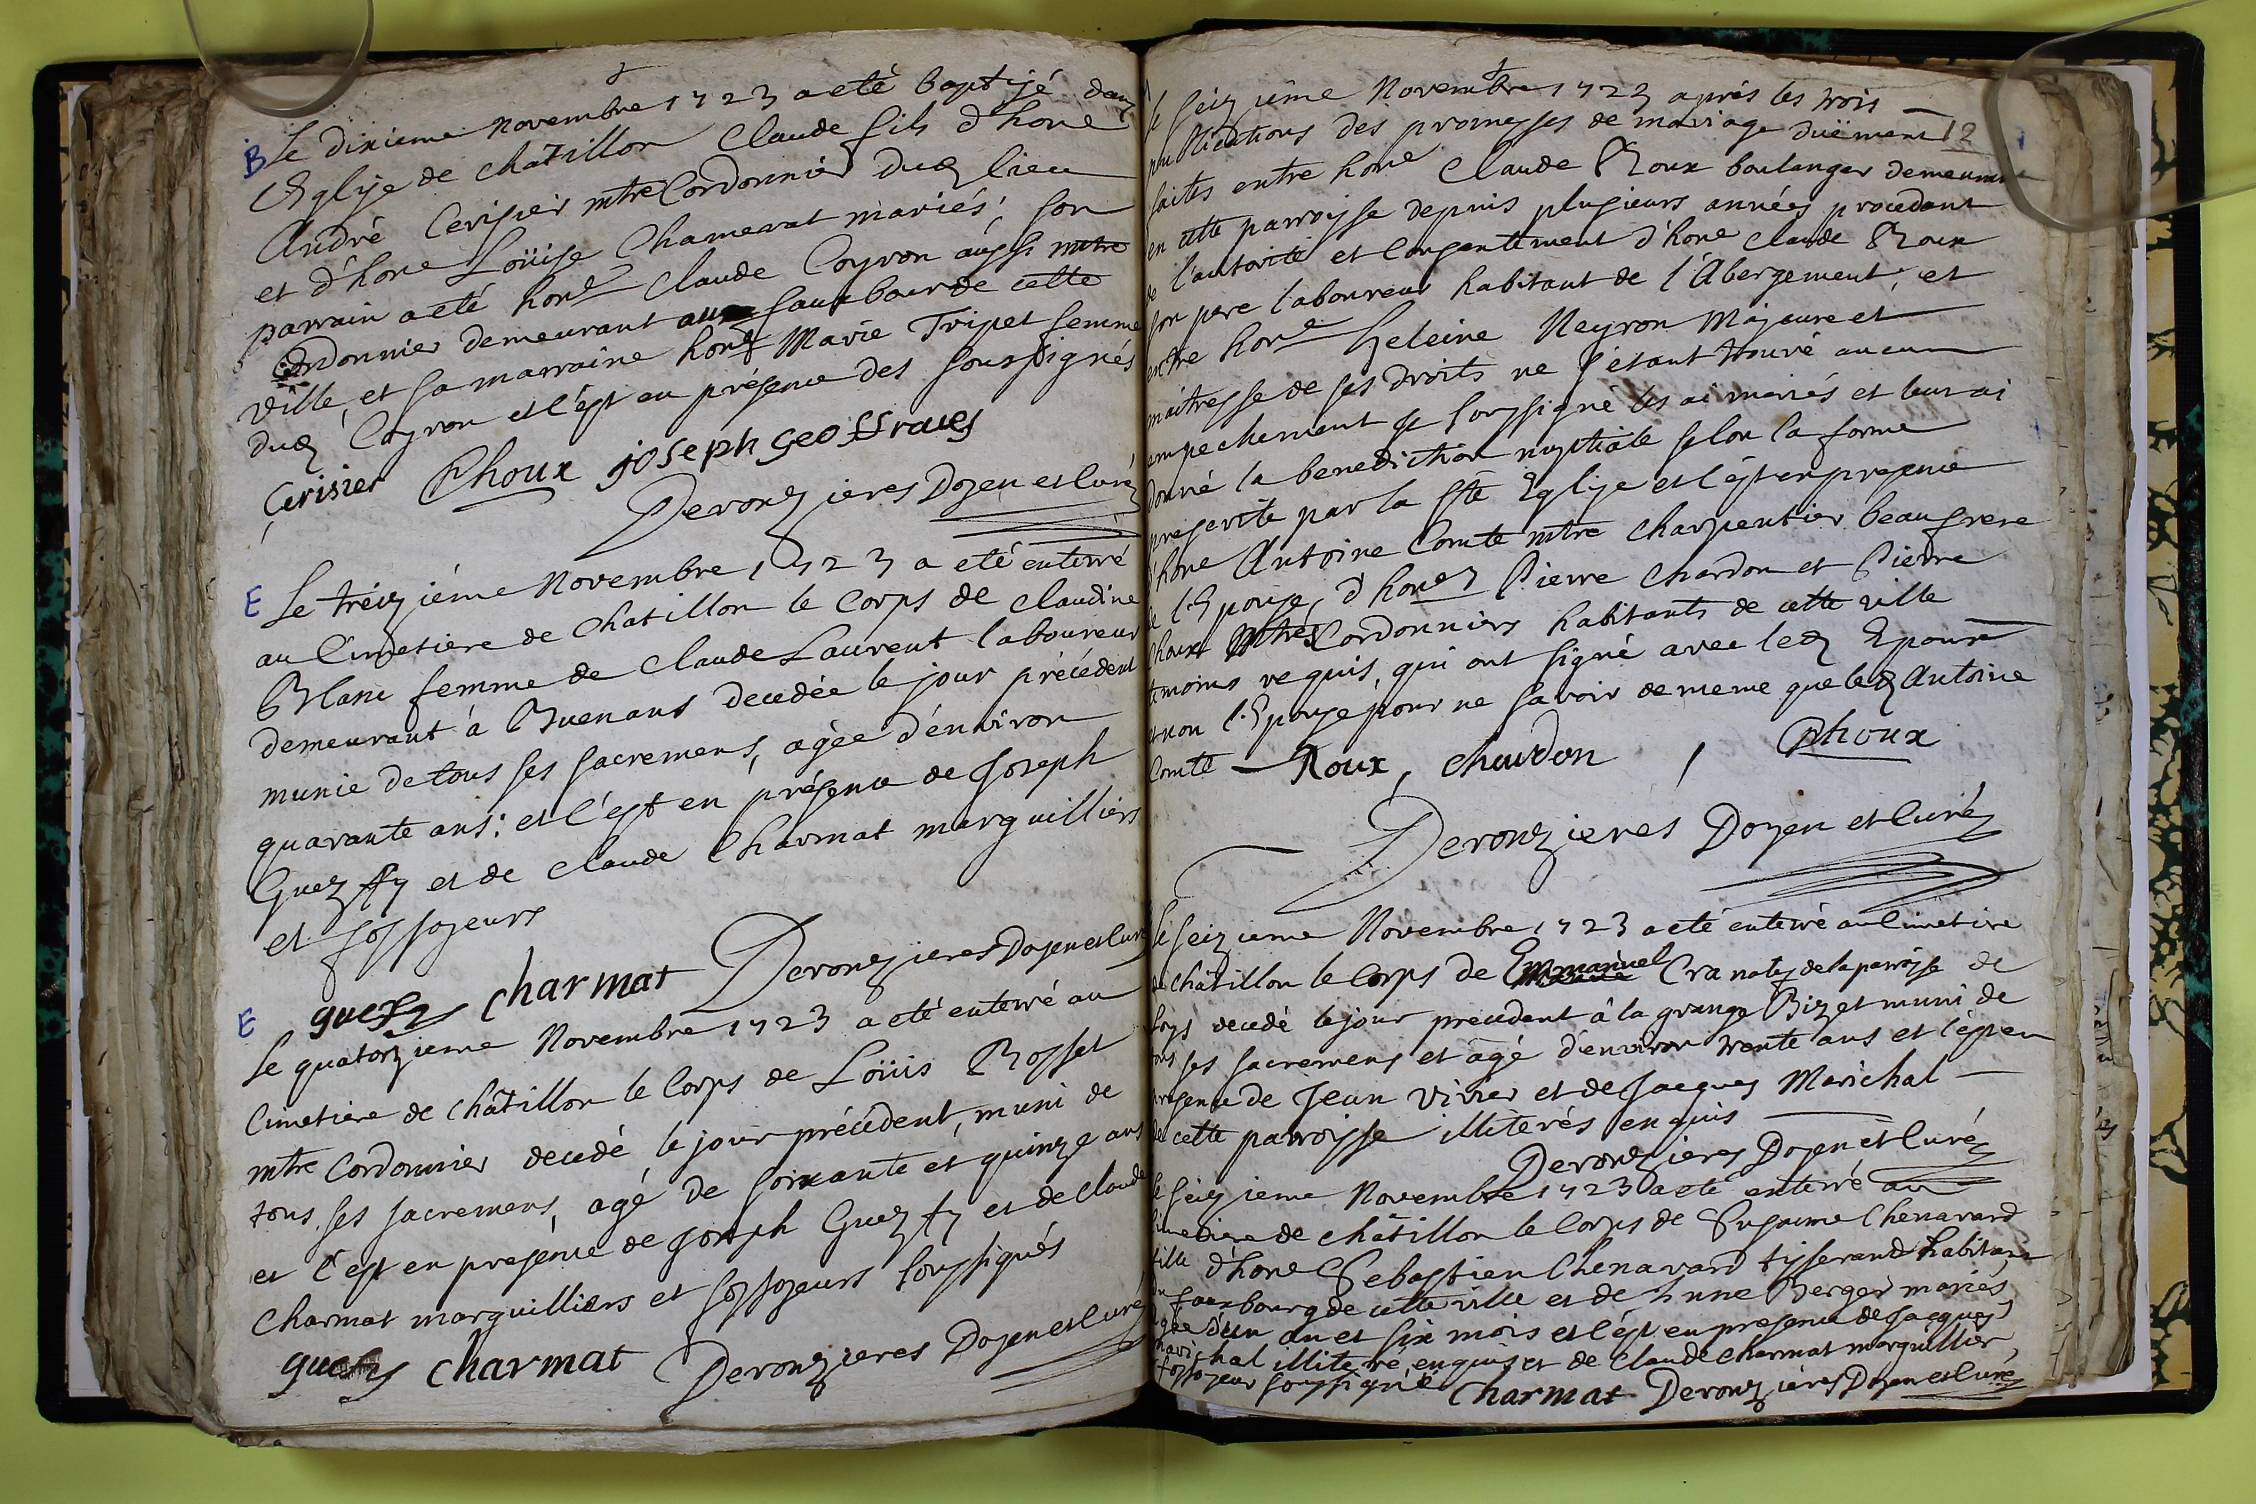 B Le dixieme novembre 1723 a eté baptisé dans
L'Eglise de châtillon Claude fils d'hone
André Cerisier mtre Cordonnier dud lieu
et d'hone Loüise Chamerat mariés, son
parrain a eté hone Claude Coyron aussi mtre
Cordonnier demeurant au fauxbour de cette
ville, et sa marraine hone Marie Tripet femme
dud Coyron et c'est en présence des soussignés
Cerisier Phoux joseph geoffraues
Deronzieres Doyen et Curé
E Le tréiziéme Novembre 1723 a eté enterré
au Cimetiere de Chatillon le Corps de Claudine
Blanc femme de Claude Laurent laboureur
demeurant á Buenans decedée le jour précédent
munie de tous ses sacremens, agée d'énviron
quarante ans: et c'est en présence de Joseph
Guezffy et de Claude Charmat marguilliers
et fossoyeurs
guesfy charmat Deronzieres Doyen et Curé
E Le quatorzieme Novembre 1723 a eté enterré au
Cimetiere de châtillon le Corps de Loüis Rosset
mtre Cordonnier decedé le jour précédent, muni de
tous ses sacremens, agé de soixante et quinze ans
et c'est en presénce de Joseph Guezffy et de Claude
Charmat marguilliers et fossoyeurs soussignés
guesfy charmat Deronzieres Doyen et Curé
12
Le Seizieme Novembre 1723 aprés les trois
publications des promesses de mariage duëment
faites entre hone Claude Roux boulanger demeurant
en cette parroisse depuis plusieurs années procedant
de l'autorité et Consentement d'hone Claude Roux
son pere laboureur habitant de l'Abergement, et
entre hone heleine Neyron Majeure et
maitresse de ses droits ne s'étant trouvé aucun
empechement je soussigné les ai mariés et leur ai
donné la benediction nuptiale selon la forme
prescrite par la Ste Eglise et c'est en presence
d'hone Antoine Comte mtre charpentier beaufrere
de l'Epouse, d'hones Pierre Chardon et Pierre
houx Mtres Cordonniers habitants de cette ville
témoins requis, qui ont signé avec led Epoux
et non l'Epouse pour ne savoir de meme que led Antoine
Comte Roux, chardon, Phoux
Deronzieres Doyen et Curé
Le Seizieme Novembre 1723 a eté enterré au Cimetire
de châtillon le Corps de Emmanuel Cranatz de la parroisse de
decedé le jour precedent á la grange Bizet muni de
tous ses sacremens et âgé d'environ trente ans et c'est en
presence de Jean Vivier et de Jacques Marichal
de cette parroisse illiterés enquis
Deronzieres Doyen et Curé
Le Seizieme Novembre 1723 a eté enterré au
Cimetiere de châtillon le Corps de Susanne Chenavard
fille d'hone Sebastien Chenavard tisserand habitant
du fauxbourg de cette ville et de Berger mariés,
agée d'un an et six mois et c'est en presence de Jacques
Marichal illiteré enquis et de Claude Charmat marguillier,
fossoyeur soussigné Charmat Deronzieres Doyen et Curé